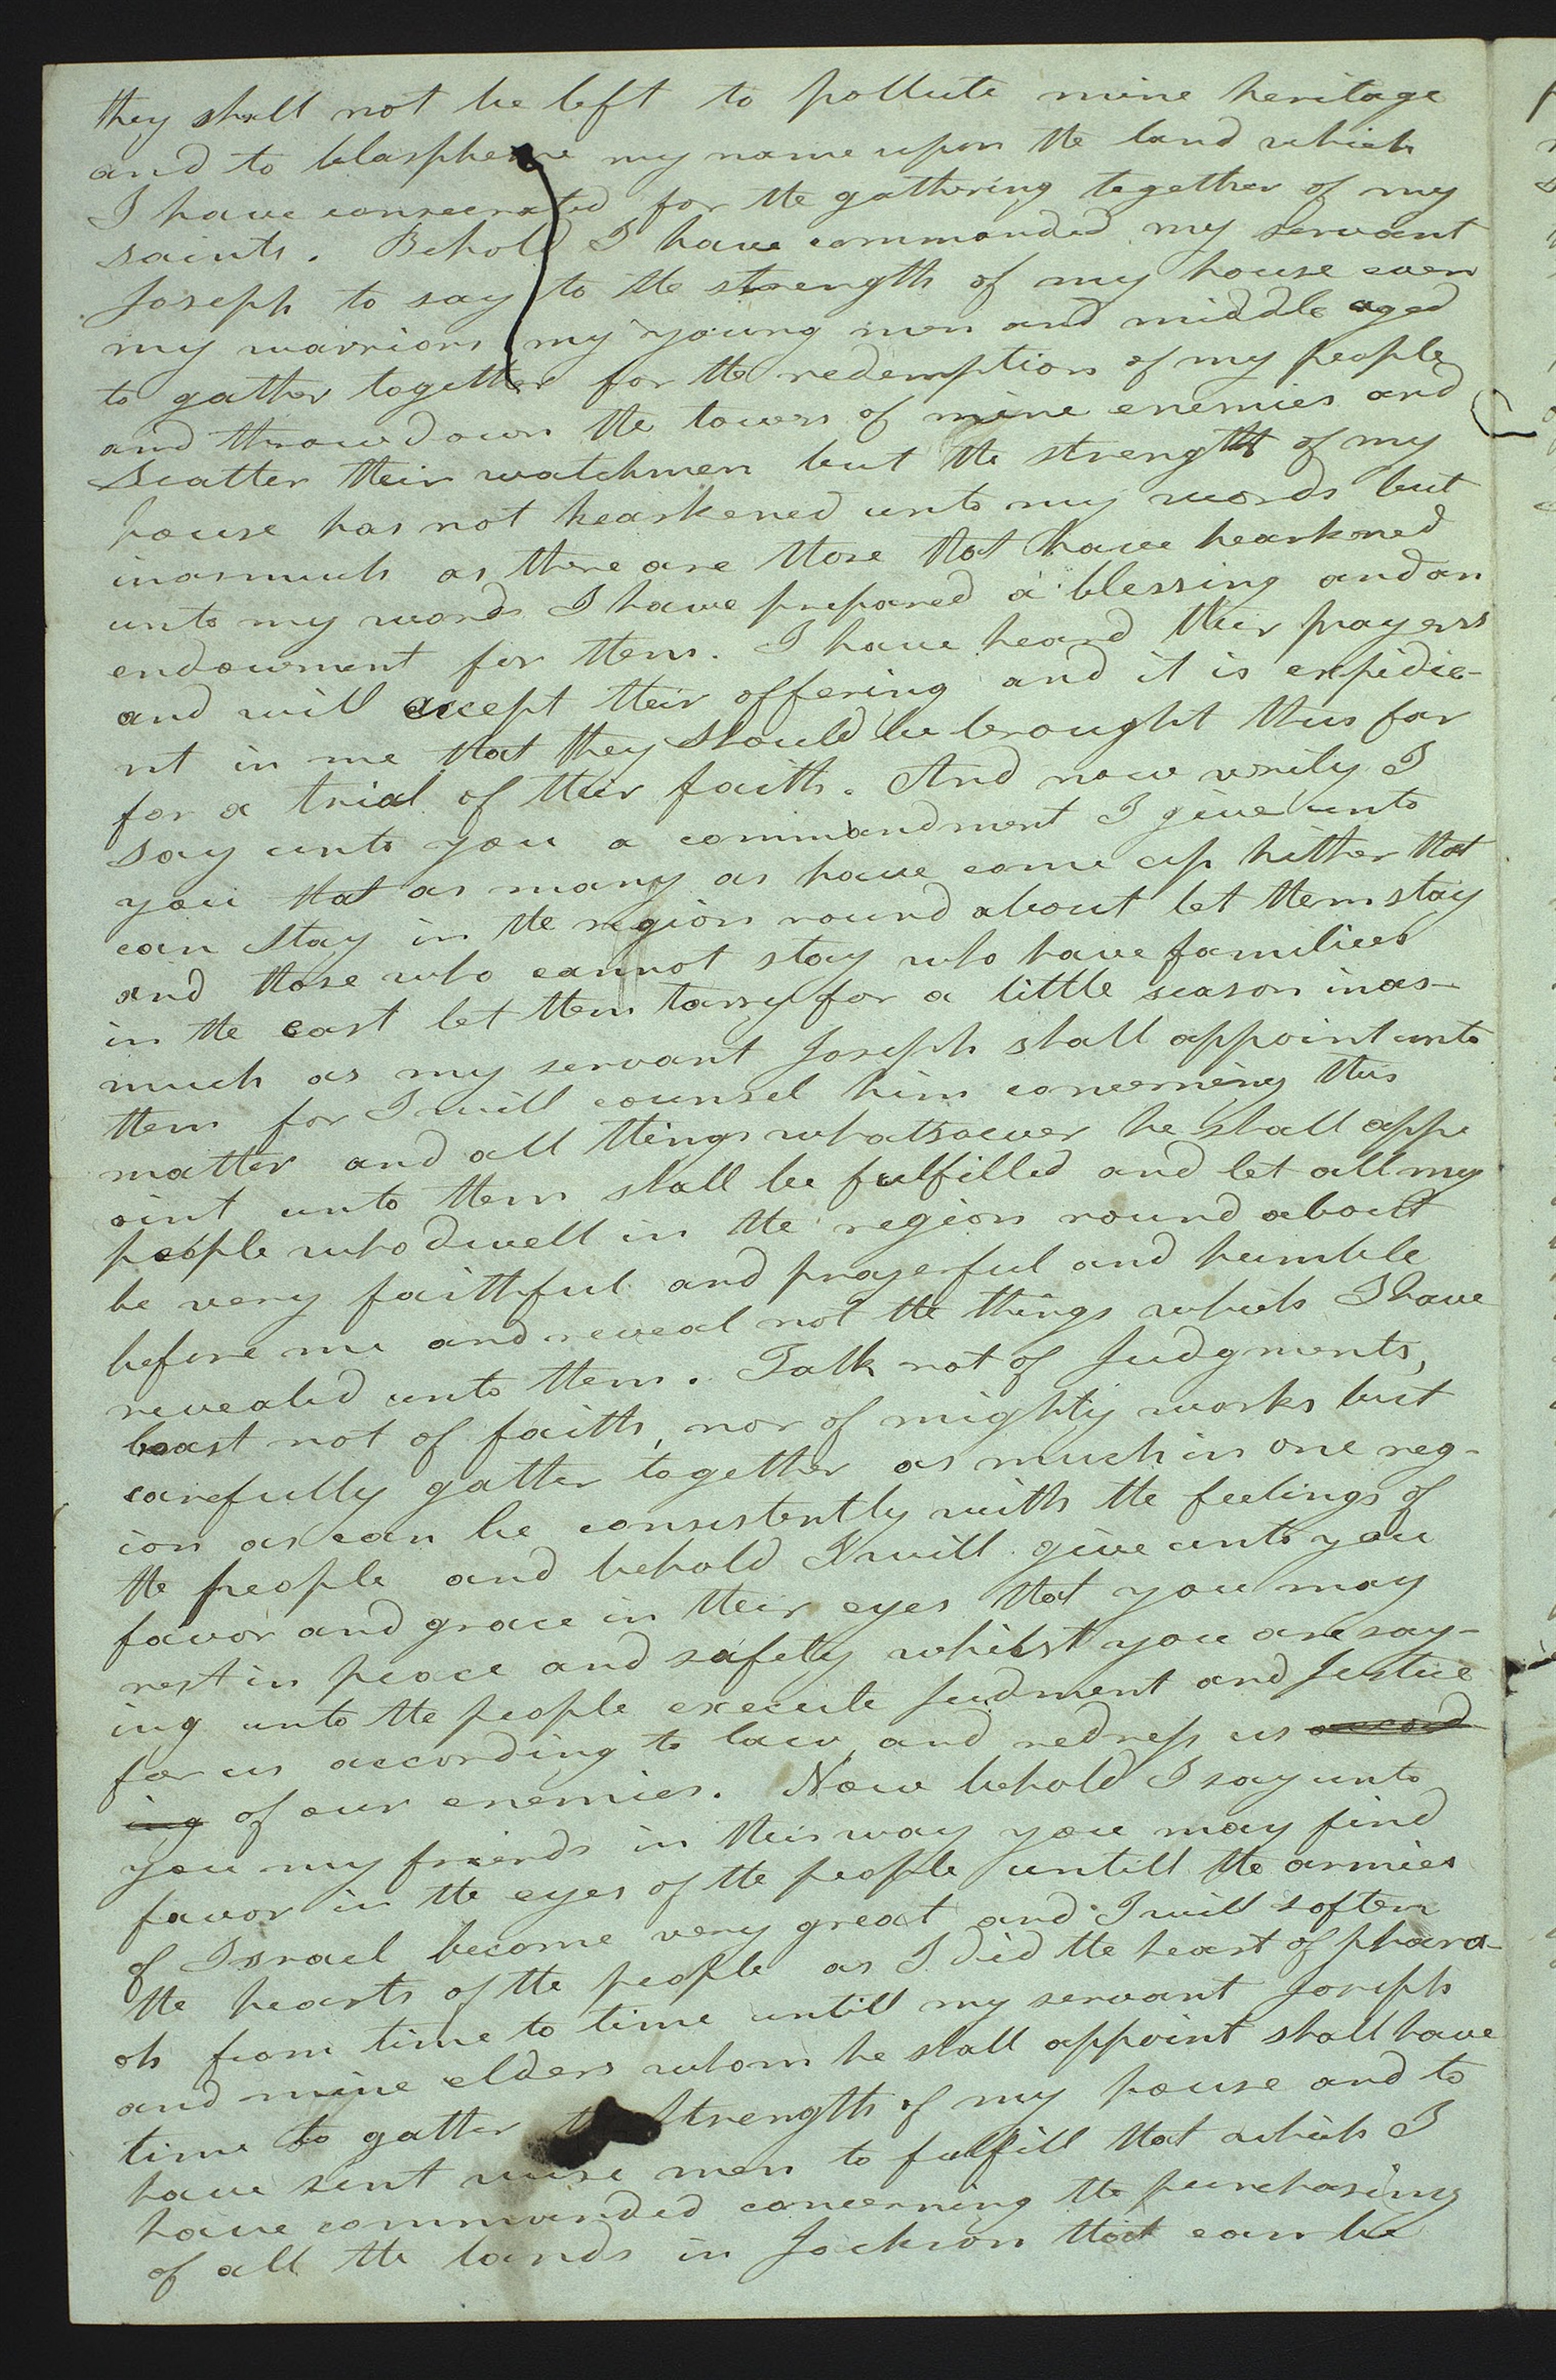 they shall not be left to pollute mine heritage
and to blaspheme my name upon the land which
I have consecrated for the gathering together of my
saints. Behold I have commanded my servant
Joseph to say to the strength of my house even
my warriors my young men and middle aged
to gather together for the redemption of my people
and throw down the towers of mine enemies and
scatter their watchmen but the strength of my
house has not hearkened unto my words but
inasmuch as there are those that have hearkened
unto my words I have prepared a blessing and an
endowment for them. I have heard their prayers
and will accept their offering and it is expidie-
nt in me that they should be brought thus far
for a trial of their faith. And now verily I
say unto you a commandment I give unto
you that as many as have come up hither that
can stay in the region round about let them stay
and those who cannot stay who have families
in the east let them tarry for a little season inas-
much as my servant Joseph shall appoint unto
them for I will counsel him concerning this
matter and all things whatsoever he shall appo
oint unto them shall be fulfilled and let all my
people who dwell in the region round about
be very faithful and prayerful and humble
before me and reveal not the things which I have
revealed unto them. Talk not of Judgments,
boast not of faith, nor of mighty works but
carefully gather together as much in one reg-
ion as can be consistently with the feelings of
the people and behold I will give unto you
favor and grace in their eyes that you may
rest in peace and safety whilst you are say-
ing unto the people execute Judment and Justice
for us according to law and redress us accord
ing of our enemies. Now behold I say unto
you my friends in this way you may find
favor in the eyes of the people untill the armies
of Israel become very great and I will soften
the hearts of the people as I did the heart of phara-
oh from time to time untill my servant Joseph
and mine elders whom he shall appoint shall have
time to gather the strength of my house and to
have sent wise men to fulfill that which I
have commanded concerning the purchasing
of all the lands in Jackson that can be